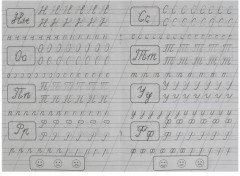 Нн Н Н Н Н Н Н
Н Н Н Н Н Н
н н н н н н н н н н
Оо О О О О О О
О О О О О О
о о о о о о о о о о
Пп П П П П П П
П П П П П П
п п п п п п п п п
Рр Р Р Р Р Р Р
Р Р Р Р Р Р
р р р р р р р р р
Сс С С С С С С С
С С С С С С С
с с с с с с с с с с
Тт Т Т Т Т Т Т
Т Т Т Т Т Т
т т т т т т т т
Уу У У У У У У У
У У У У У У У
у у у у у у у у у
Фф Ф Ф Ф Ф Ф Ф
Ф Ф Ф Ф Ф Ф
ф ф ф ф ф ф ф ф